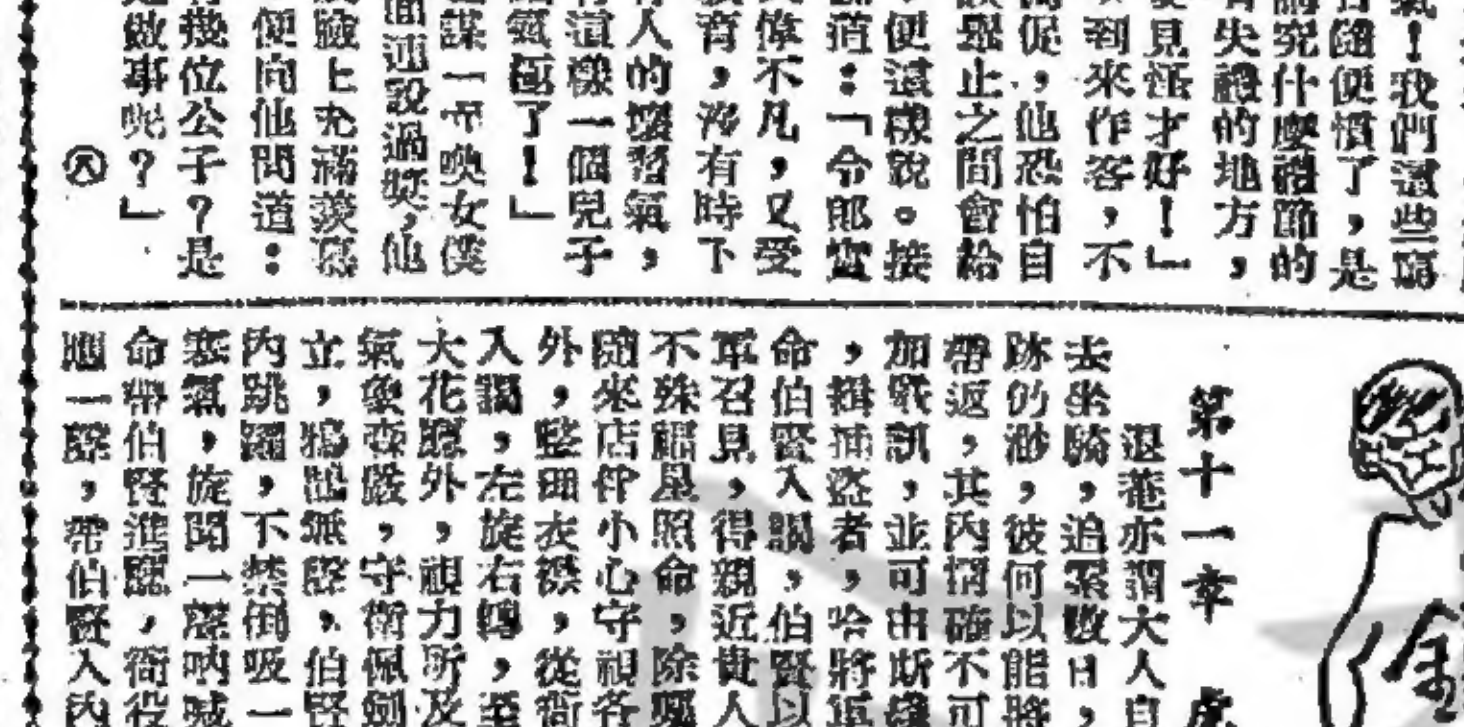 氣！我們這些窮
習隨便慣了，是
講究什麼禮節的
有失禮的地方，
要見怪才好！」
到來作客，不
侷促，他恐怕自
舉止之間會給
便這樣說。接
道：「令郎實
偉不凡，又受
教育，沒有時下
有人的壞習氣，
有這樣一個兒子
氣極了！」
謀一一喚女僕
面連說過獎，他
臉上充滿羨慕
便向他問道：
有幾位公子？是
是做事呢？」
第十一章 虎
退菴亦謂大人自
去坐騎，追索數日，
跡仍渺，彼何以能將
帶返，其內情確不可
加嚴訊，並可由斯
，揖捕盜者，哈將軍
命伯賢入謁，伯賢以
軍召見，得親近貴人
不殊福星照命，除囑
隨來店伴小心守視各
外，整理衣襟，從衙
入謁，左旋右轉，至
大花廳外，視力所及
氣象森嚴，守衛佩劍
立，鴉鵲無聲，伯賢
內跳躍，不禁倒吸一
寒氣，旋聞一聲吶喊
命帶伯賢進廳，衙役
應一聲，帶伯賢入內